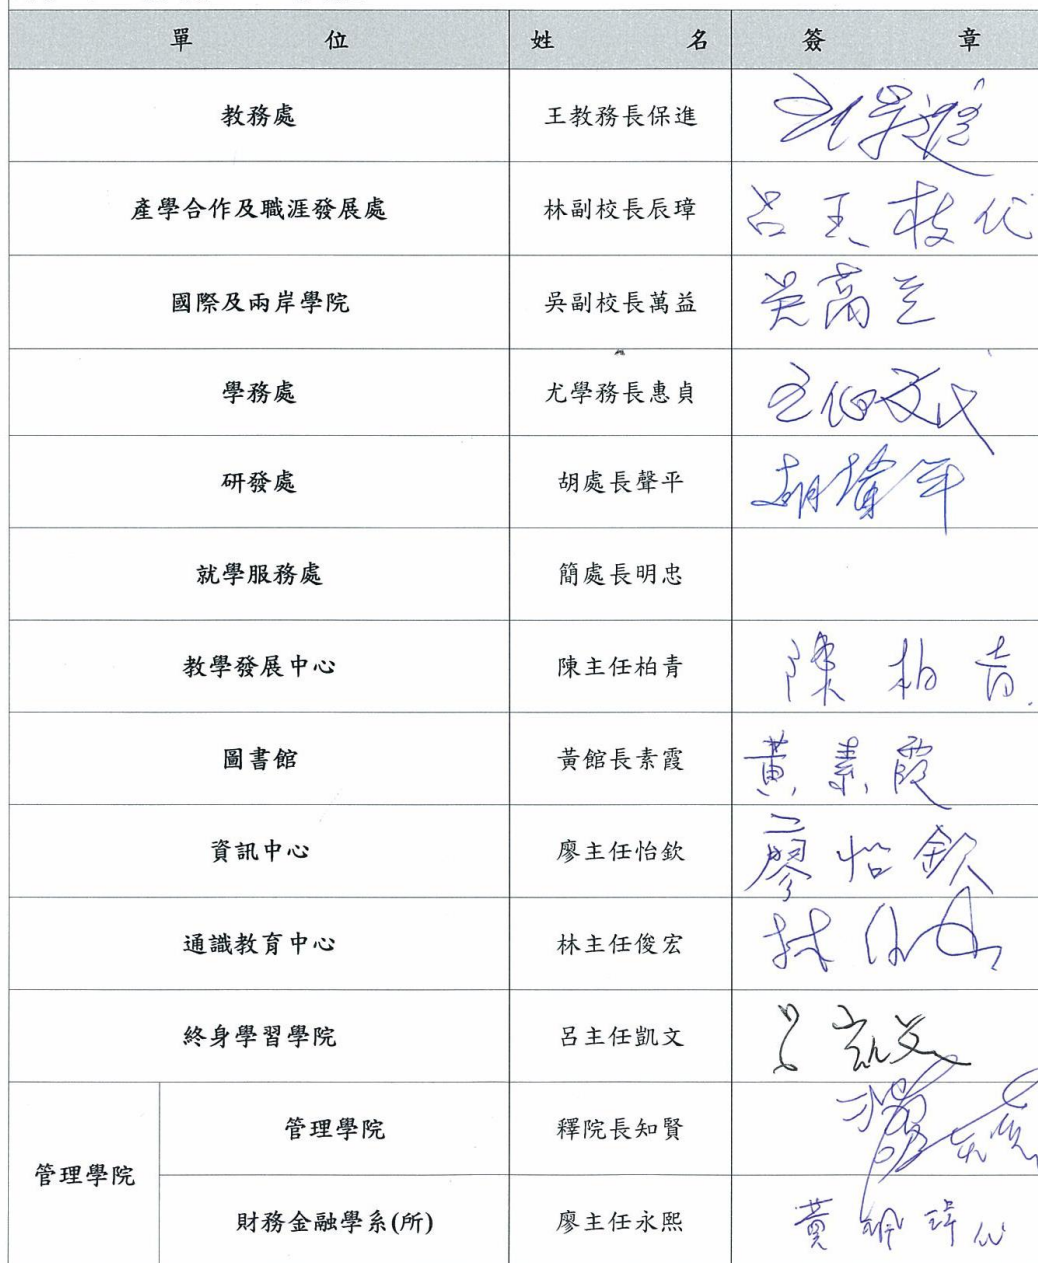 單位 姓名 簽章
教務處 王教務長保進 王保進
產學合作及職涯發展處 林副校長辰璋 呂玉枝代
國際及兩岸學院 吳副校長萬益 吳萬益
學務處 尤學務長惠貞
研發處 胡處長聲平 胡聲平
就學服務處 簡處長明忠
教學發展中心 陳主任柏青 陳柏青
圖書館 黃館長素霞 黃素霞
資訊中心 廖主任怡欽 廖怡欽
通識教育中心 林主任俊宏 林俊宏
終身學習學院 呂主任凱文 呂凱文
管理學院 管理學院 釋院長知賢
財務金融學系(所) 廖主任永熙